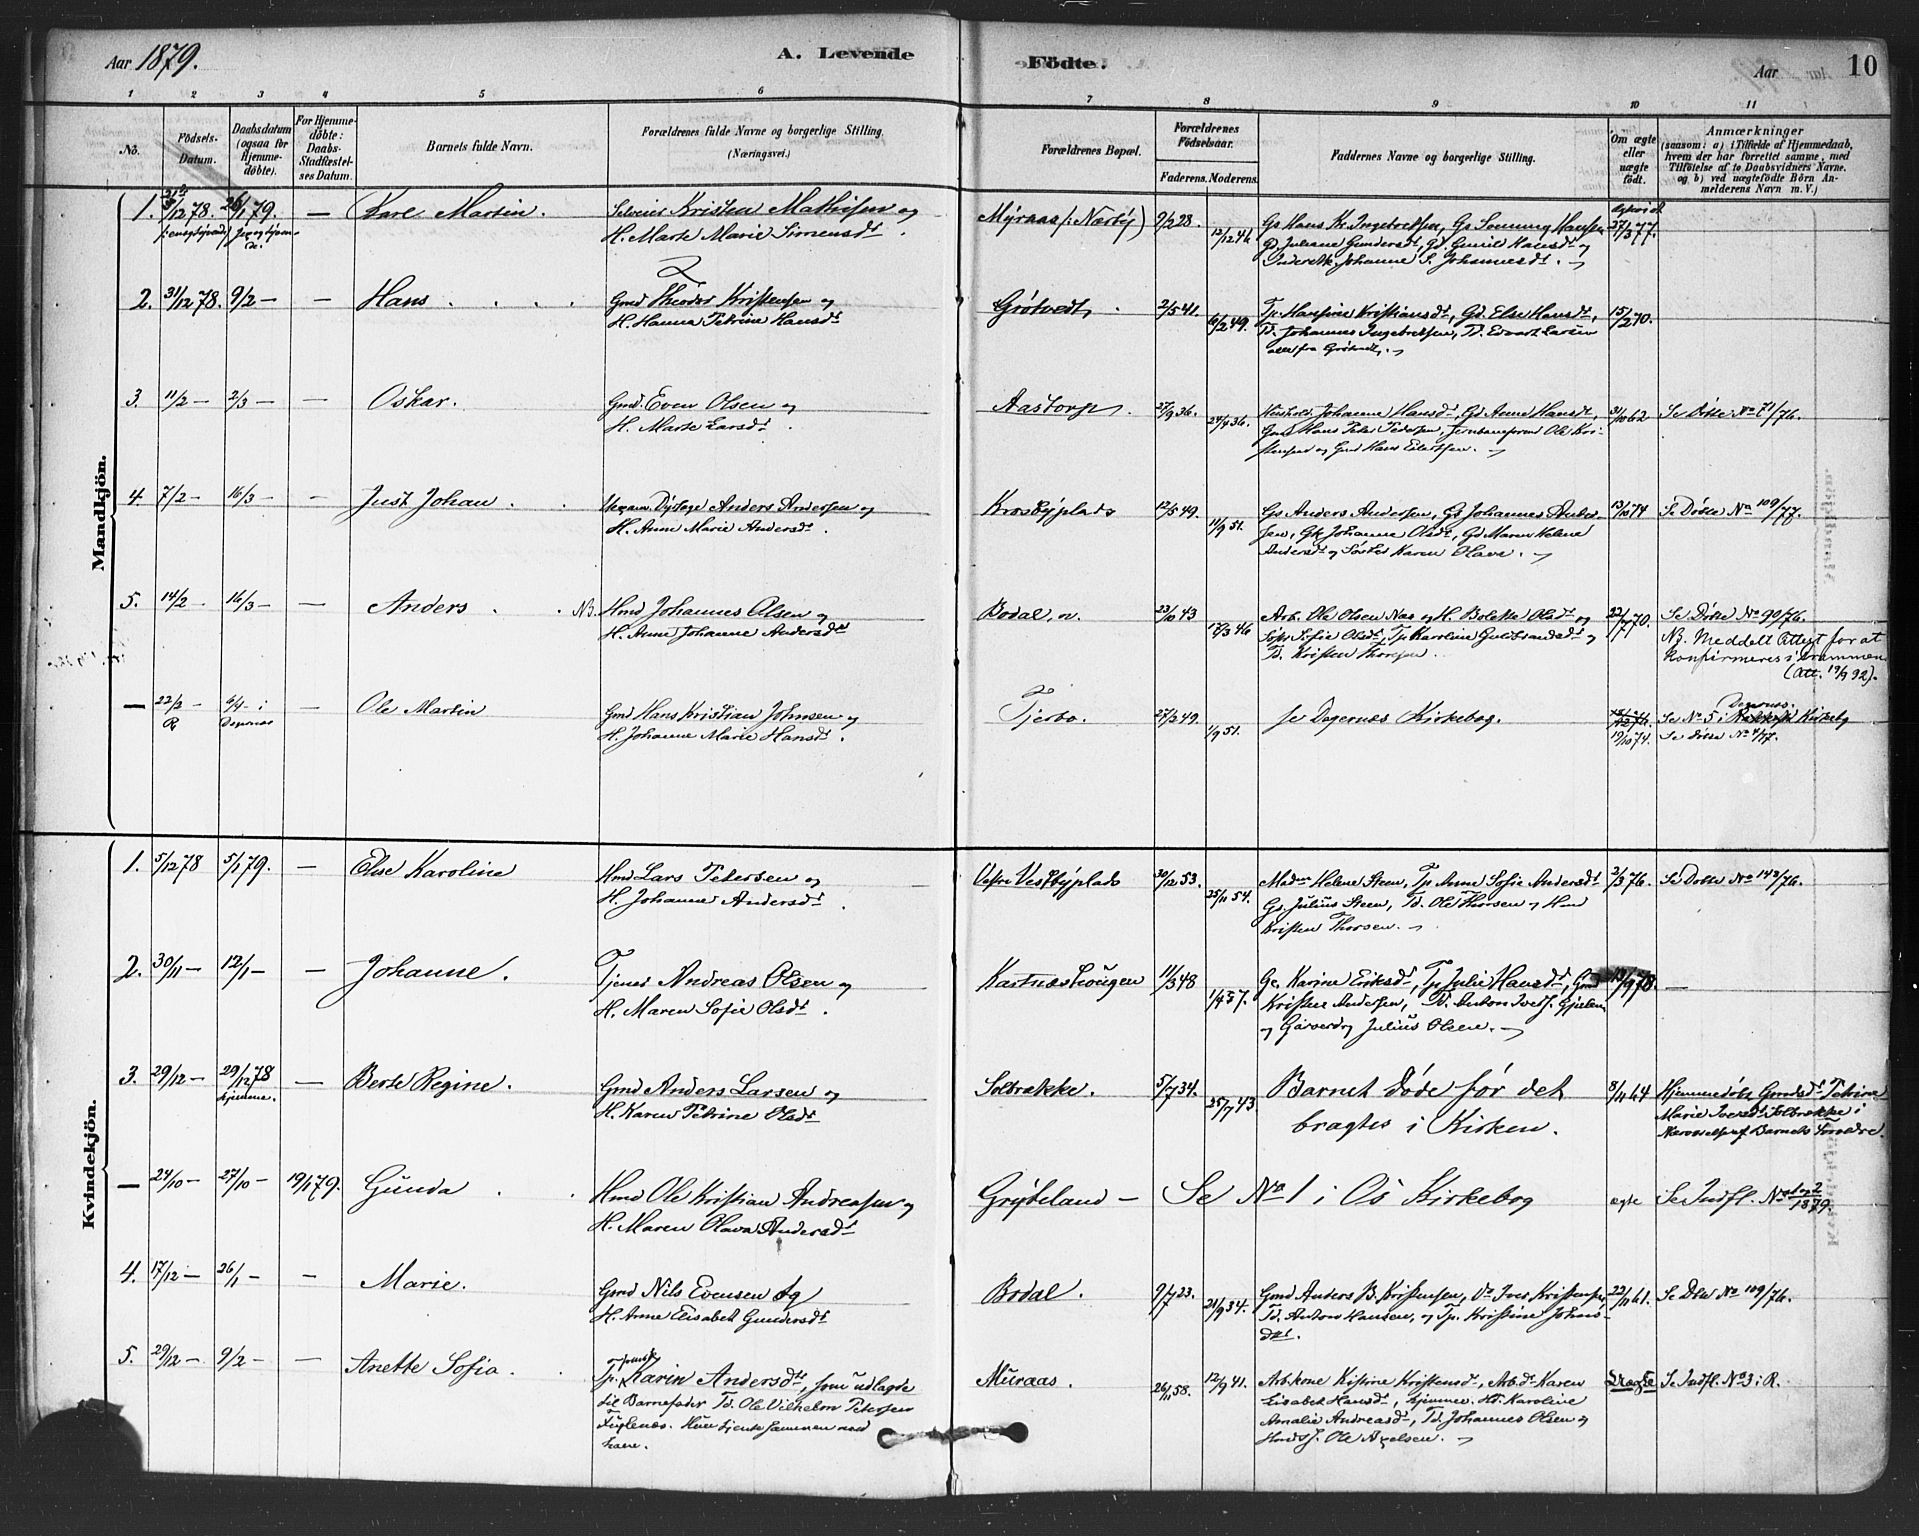 Aar 1879. A. Levende Fødte. Aar 10
1 2 3 4 5 6 7 8 9 10 11
No.
Födsels-Datum.
Daabsdatum (ogsaa for Hjemmedöbte).
For Hjemmedöbte: Daabs-Stadfæstelses Datum.
Barnets fulde Navn.
Forældrenes fulde Navne og borgerlige Stilling.
(Næringsvei.)
Forældrenes Bopæl.
Forældrenes Födselsaar.
Faderens. Moderens.
Faddernes Navne og borgerlige Stilling.
Om ægte eller uægte födt.
Anmærkninger
(saasom: a) i Tilfælde af Hjemmedaab,
hvem der har forrettet samme, med
Tilföielse af to Daabsvidners Navne,
og b) ved uægtefödte Börn An-
melderens Navn m. V.)
Mandkjön.
1. 3/12 78. 26/1 79. — Karl Martin. Selveier Kristen Mathisen og
H. Marte Marie Simensdt.
Myraas (: Nærby) 9/2 28. 12/12 46 Gs Hans Kr. Ingebretsen, Gs Hansen
Gd. Juliane Gundersdt, Gd. Gunild Hansdt og
Johanne S. Johannesdt. 27/3 77.
2. 31/12 78. 9/2 — — Hans Gmd Theodor Kristensen og
H. Hanna Petrine Hansdt
Grötvedt. 2/5 41. 6/2 49. Tp. Hansine Kristiansdt, Gd. Else Hansdt,
Td. Johannes Ingebretsen, Td. Edvart Larsen
alle fra Grötvedt. 15/2 70.
3. 11/2 — 2/3 — — Oskar. Gmd. Even Olsen og
H. Marte Larsdt.
Aastorp. 27/9 36. 24/4 36. Johanne Hansdt, Gd Anne Hansdt,
Gmd Hans Peter Pedersen, Ole Kri-
stensen og Gmd Hans Eilertsen. 31/10 62 Se Döbte No 71/76.
4. 7/2 — 16/3 — — Just Johan Anders Andersen og
H. Anne Marie Andersdt.
Krosbyplads 12/5 49. 11/9 51. Gs Anders Andersen, Gs Johannes Ander-
sen, Gk Johanne Olsdt, Gd Maren Helene
Andersdt og Karen Olava. 13/10 74 Se Döbte No 109/77.
5. 14/2 — 16/3 — — Anders NB. Hmd Johannes Olsen og
H. Anne Johanne Andersdt
Bodal, ö. 23/10 43 17/3 46 Arb. Ole Olsen Naa og H. Bolette Olsdt og
Sofie Olsdt, Tp Karoline Guldbrandsdt og
Td. Kristen Thorsen. 22/7 70. Se Döbte No 90/76.
NB. Meddelt Attest for at
konfirmeres i Drammen
(Att. 19/9 92).
— 22/2 R 6/4 — i Degernes — Ole Martin Gmd Hans Kristian Johnsen og
H. Johanne Marie Hansdt.
Tjerbo. 27/3 49. 1/9 51. se Degernes Kirkebog. 19/10 74. Degernes.
Se No 5 i Kirkebog
Se Döbte No 4/77.
Kvindekjön.
1. 5/12 78 5/1 79. — Else Karoline Hmd Lars Petersen og
H. Johanne Andersdt.
Vestre Vestbyplads 30/12 53. 25/11 54. Madm Helene Steen, Tp Anne Sofie Andersdt
Gs. Julius Steen, Td. Ole Thorsen og Hmd
Kristen Thorsen. 2/3 76. Se Döbte No 143/76.
2. 30/11 — 12/1 — — Johanne. Tjener Andreas Olsen og
H. Maren Sofie Olsdt.
Kastneshougen 11/3 48 1/4 57. Gd. Karine Eriksdt, Tp Julie Hansdt, Gmd
Kristen Andersen, Td. Anton
og Julius Olsen. 13/9 78. —
3. 29/12 — 29/12 78 hjemme. — Berte Regine. Gmd Anders Larsen og
H. Karen Petrine Olsdt
Solbrække. 5/7 34. 25/7 43 Barnet döde för det
bragtes i Kirken. 8/11 64 Hjemmedöbt Gmdsdt Petrine
Marie Iversdt Solbrække i
Nærværelse af Barnets Forældre.
— 24/10 — 27/10 — 19/1 79. Gunda Hmd Ole Kristian Andreassen og
H. Maren Olava Andersdt
Grybeland — Se No 1 i Os Kirkebog ægte Se Indfl. No 1 og 2/1879.
4. 17/12 — 26/1 — — Marie. Gmd Nils Evensen og
H. Anne Elisabet Gundersdt
Bodal. 9/7 23. 21/9 34. Gmd Anders B. Kristensen, Do Iver Kristensen
Td. Anton Hansen, og Tp. Kristine Johns-
dtt. 22/11 61. Se Döbte No 109/76.
5. 29/12 — 9/2 — — Anette Sofia Tp. Karin Andersdt, som udlagde
til Barnefader Td. Ole Vilhelm Petersen
Fuglenæs. Hun tjente sammen med
ham.
Muraas. 26/11 58. 12/9 41. Arbkone Kistine Kristensdt, Arbdt Karen
Elisabet Hansdt, hjemmev. Hd. Karoline
Amalie Andreasdt, Td. Johannes Olsen og
Ole Axelsen. Uægte Se Indfl. No 3 i R.